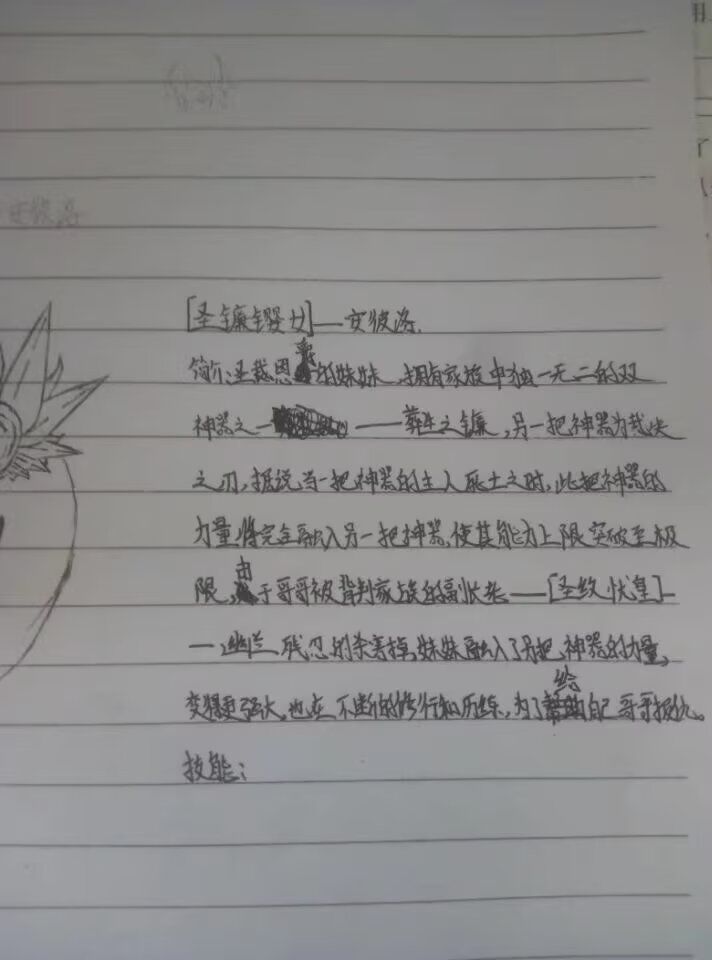 [圣镰婴女]——安彼洛.
简介:圣裁恩的妹妹,拥有家族中独一无二的双
神器之一——葬生之镰,另一把神器为裁决
之刃,据说当一把神器的主人死亡之时,此把神器的
力量将完全融入另一把神器,使其能力上限突破至极
限,由于哥哥被背判家族的副长老——[圣纹·忧皇]-
—幽兰残忍的杀害掉,妹妹融入了另把神器的力量,
变得更强大,也在不断的修行和历练,为了给自己哥哥报仇。
技能: